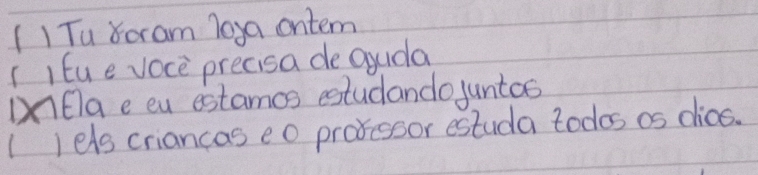 ( ) Tu foram loga ontem
( ) Eu e você precisa de ajuda
(X) Ela e eu estamos estudando juntos
( ) els crianças e o professor estuda todos os dias.